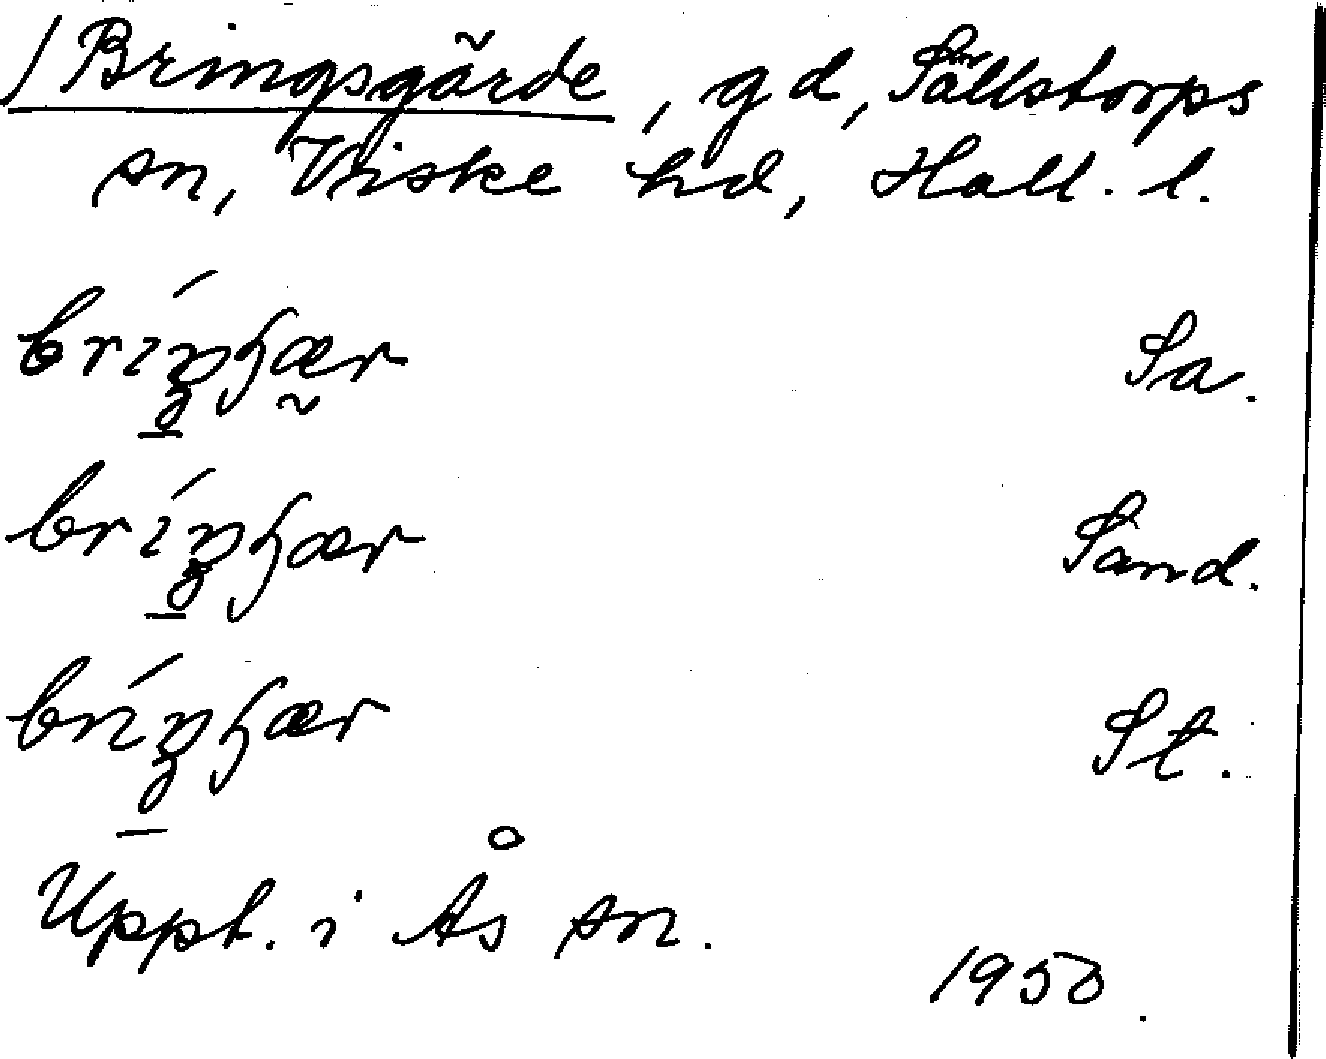 / Bringsgärde, gd, Sällstorps
sn, Viske hd, Hall. l.
bríŋʒær Sa.
bríŋʒær Sand.
bríŋʒær St.
Uppt. i Ås sn.
1950.